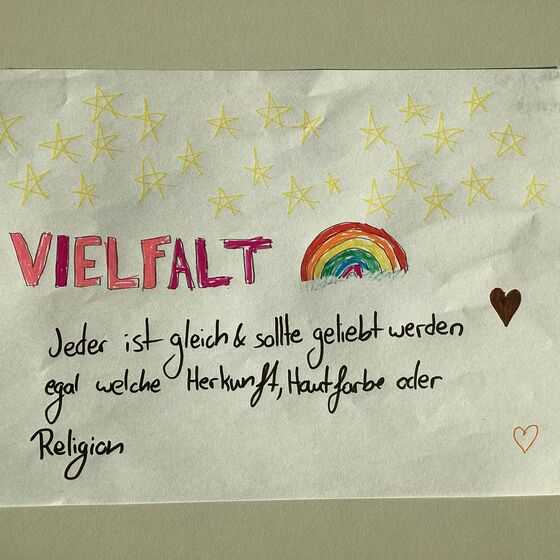 VIELFALT
Jeder ist gleich & sollte geliebt werden
egal welche Herkunft, Hautfarbe oder
Religion